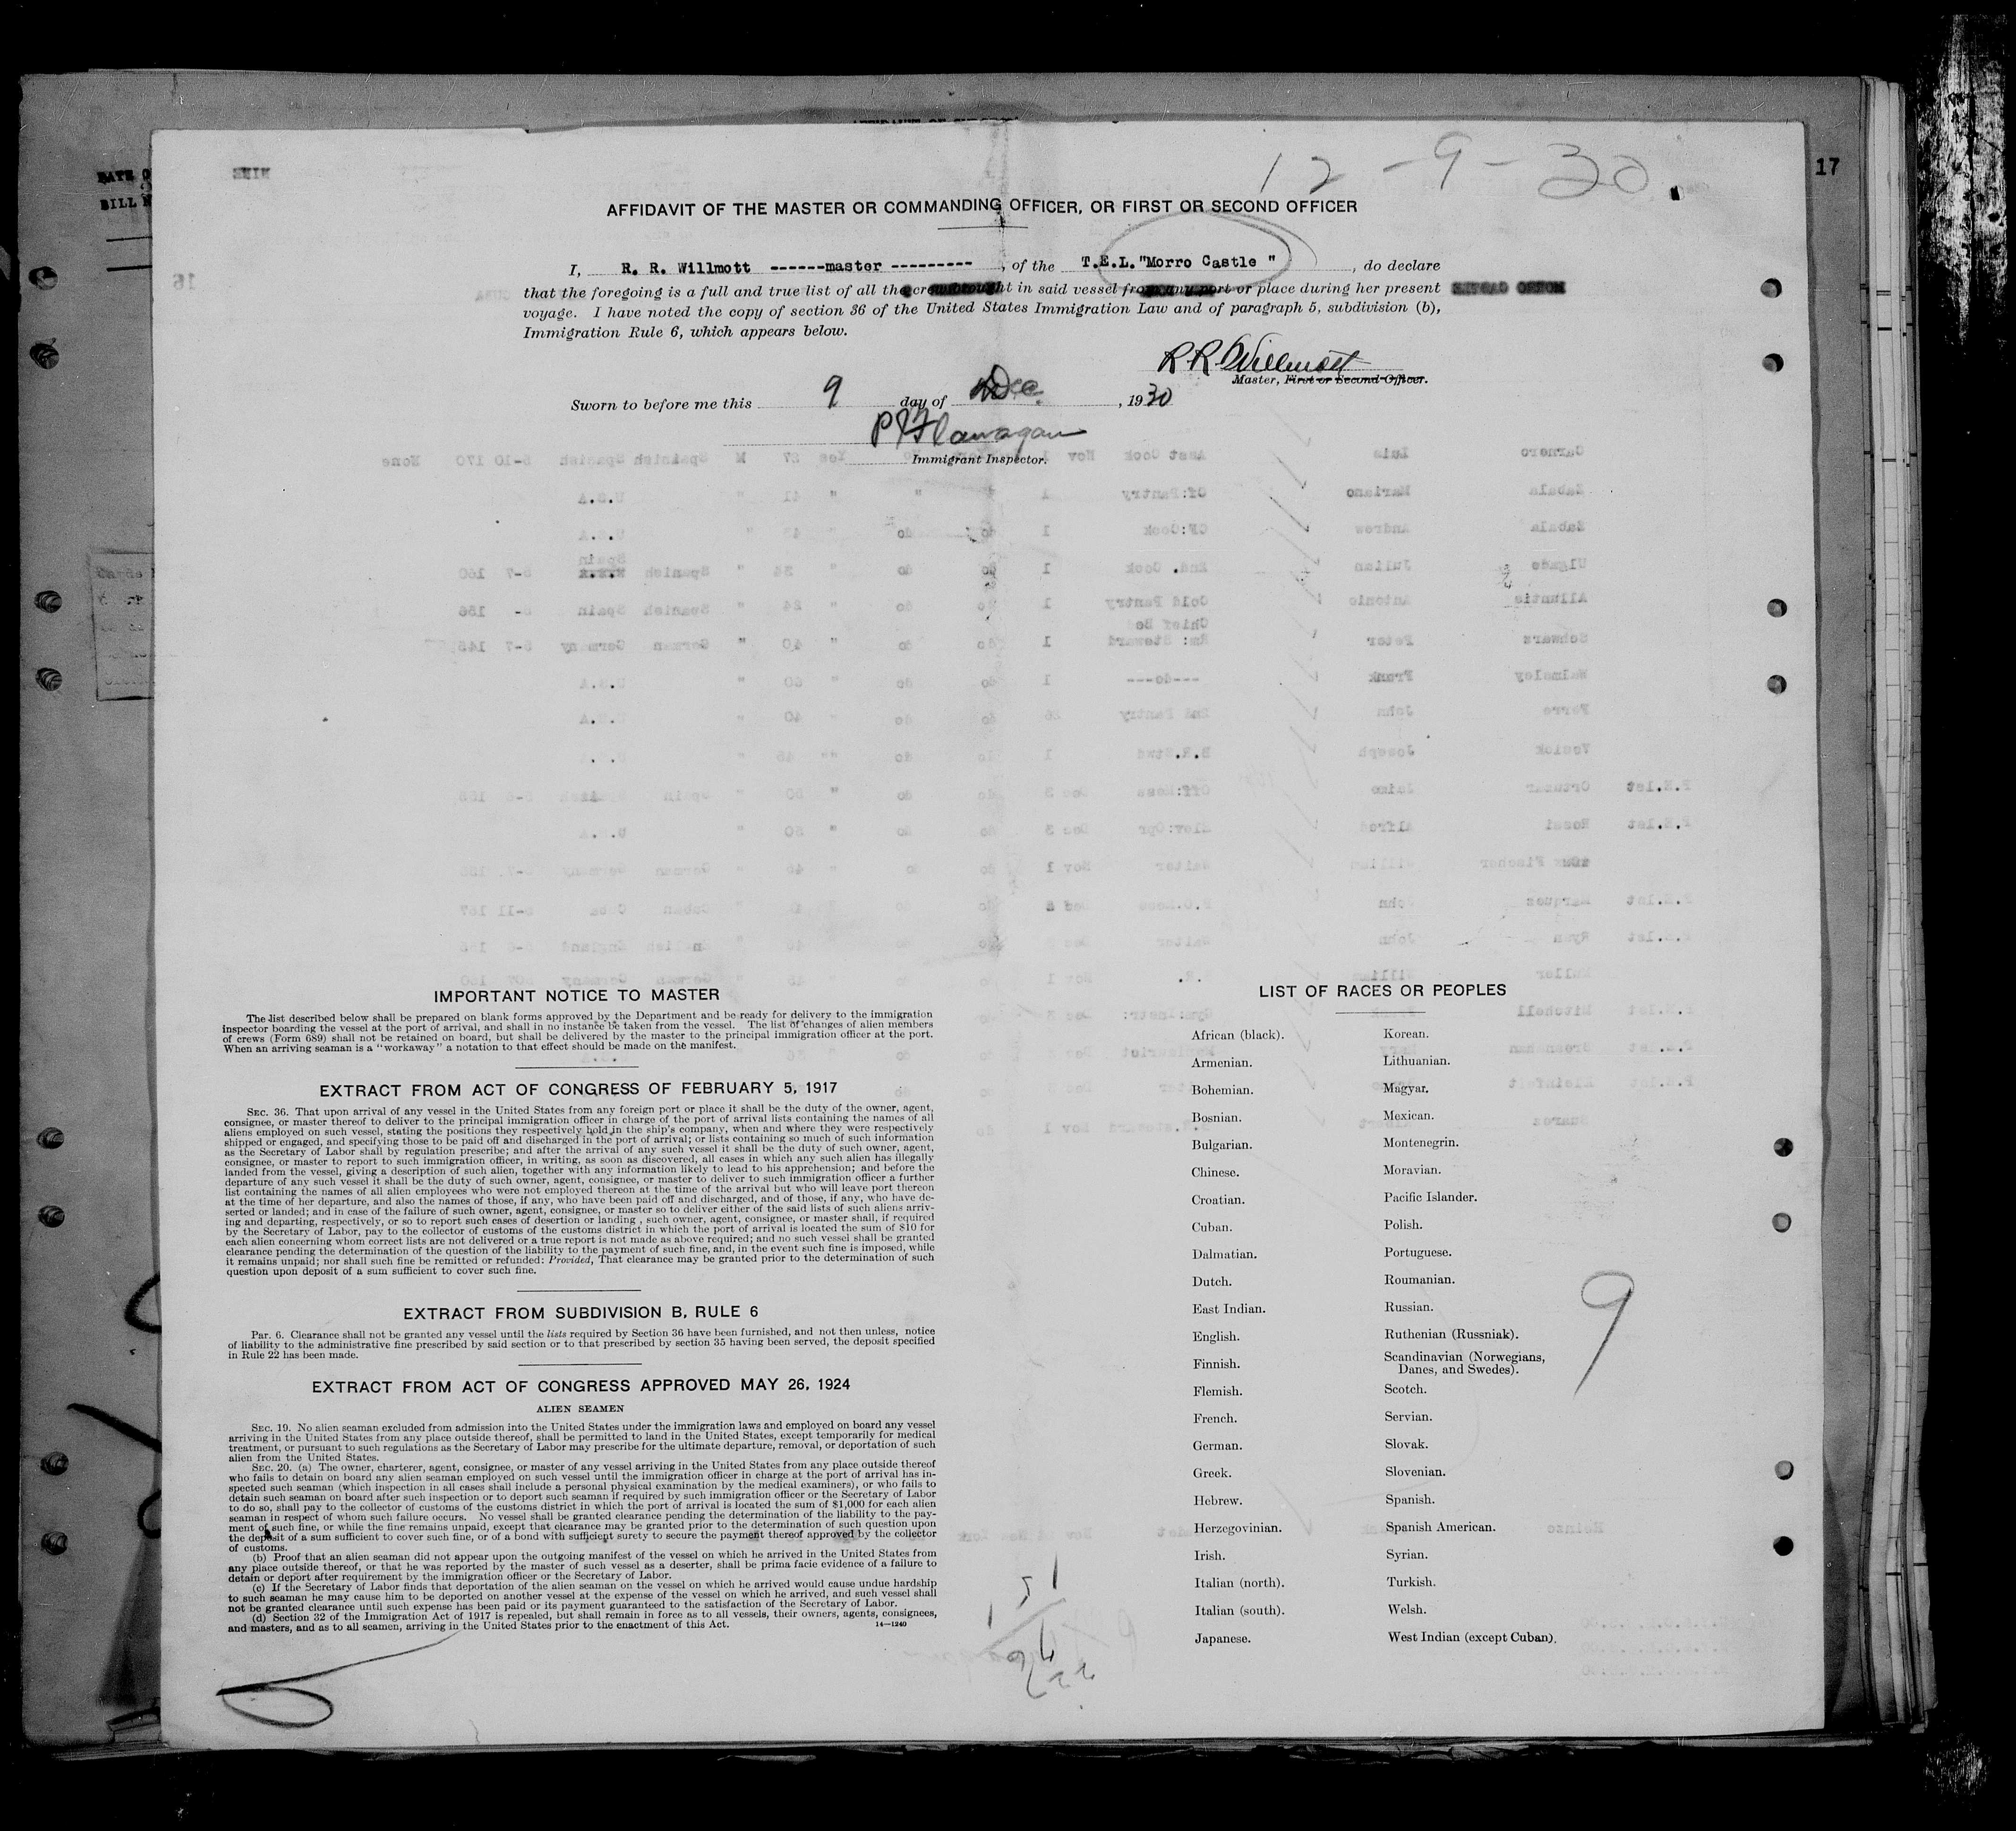 12-9-30
17
AFFIDAVIT OF THE MASTER OR COMMANDING OFFICER, OR FIRST OR SECOND OFFICER
I, R. R. Willmott ------master ---------, of the T.E.L."Morro Castle ", do declare
that the foregoing is a full and true list of all the crew brought in said vessel from any port or place during her present
voyage. I have noted the copy of section 36 of the United States Immigration Law and of paragraph 5, subdivision (b),
Immigration Rule 6, which appears below.
R R Willmott
Master, First or Second Officer.
Sworn to before me this 9 day of Dec. , 1930
P J Flanagan
Immigrant Inspector.
IMPORTANT NOTICE TO MASTER
The list described below shall be prepared on blank forms approved by the Department and be ready for delivery to the immigration
inspector boarding the vessel at the port of arrival, and shall in no instance be taken from the vessel. The list of changes of alien members
of crews (Form 689) shall not be retained on board, but shall be delivered by the master to the principal immigration officer at the port.
When an arriving seaman is a "workaway" a notation to that effect should be made on the manifest.
EXTRACT FROM ACT OF CONGRESS OF FEBRUARY 5, 1917
SEC. 36. That upon arrival of any vessel in the United States from any foreign port or place it shall be the duty of the owner, agent,
consignee, or master thereof to deliver to the principal immigration officer in charge of the port of arrival lists containing the names of all
aliens employed on such vessel, stating the positions they respectively hold in the ship's company, when and where they were respectively
shipped or engaged, and specifying those to be paid off and discharged in the port of arrival; or lists containing so much of such information
as the Secretary of Labor shall by regulation prescribe; and after the arrival of any such vessel it shall be the duty of such owner, agent,
consignee, or master to report to such immigration officer, in writing, as soon as discovered, all cases in which any such alien has illegally
landed from the vessel, giving a description of such alien, together with any information likely to lead to his apprehension; and before the
departure of any such vessel it shall be the duty of such owner, agent, consignee, or master to deliver to such immigration officer a further
list containing the names of all alien employees who were not employed thereon at the time of the arrival but who will leave port thereon
at the time of her departure, and also the names of those, if any, who have been paid off and discharged, and of those, if any, who have de-
serted or landed; and in case of the failure of such owner, agent, consignee, or master so to deliver either of the said lists of such aliens arriv-
ing and departing, respectively, or so to report such cases of desertion or landing , such owner, agent, consignee, or master shall, if required
by the Secretary of Labor, pay to the collector of customs of the customs district in which the port of arrival is located the sum of $10 for
each alien concerning whom correct lists are not delivered or a true report is not made as above required; and no such vessel shall be granted
clearance pending the determination of the question of the liability to the payment of such fine, and, in the event such fine is imposed, while
it remains unpaid; nor shall such fine be remitted or refunded: Provided, That clearance may be granted prior to the determination of such
question upon deposit of a sum sufficient to cover such fine.
EXTRACT FROM SUBDIVISION B, RULE 6
Par. 6. Clearance shall not be granted any vessel until the lists required by Section 36 have been furnished, and not then unless, notice
of liability to the administrative fine prescribed by said section or to that prescribed by section 35 having been served, the deposit specified
in Rule 22 has been made.
EXTRACT FROM ACT OF CONGRESS APPROVED MAY 26, 1924
ALIEN SEAMEN
SEC. 19. No alien seaman excluded from admission into the United States under the immigration laws and employed on board any vessel
arriving in the United States from any place outside thereof, shall be permitted to land in the United States, except temporarily for medical
treatment, or pursuant to such regulations as the Secretary of Labor may prescribe for the ultimate departure, removal, or deportation of such
alien from the United States.
SEC. 20. (a) The owner, charterer, agent, consignee, or master of any vessel arriving in the United States from any place outside thereof
who fails to detain on board any alien seaman employed on such vessel until the immigration officer in charge at the port of arrival has in-
spected such seaman (which inspection in all cases shall include a personal physical examination by the medical examiners), or who fails to
detain such seaman on board after such inspection or to deport such seaman if required by such immigration officer or the Secretary of Labor
to do so, shall pay to the collector of customs of the customs district in which the port of arrival is located the sum of $1,000 for each alien
seaman in respect of whom such failure occurs. No vessel shall be granted clearance pending the determination of the liability to the pay-
ment of such fine, or while the fine remains unpaid, except that clearance may be granted prior to the determination of such question upon
the deposit of a sum sufficient to cover such fine, or of a bond with sufficient surety to secure the payment thereof approved by the collector
of customs.
(b) Proof that an alien seaman did not appear upon the outgoing manifest of the vessel on which he arrived in the United States from
any place outside thereof, or that he was reported by the master of such vessel as a deserter, shall be prima facie evidence of a failure to
detain or deport after requirement by the immigration officer or the Secretary of Labor.
(c) If the Secretary of Labor finds that deportation of the alien seaman on the vessel on which he arrived would cause undue hardship
to such seaman he may cause him to be deported on another vessel at the expense of the vessel on which he arrived, and such vessel shall
not be granted clearance until such expense has been paid or its payment guaranteed to the satisfaction of the Secretary of Labor.
(d) Section 32 of the Immigration Act of 1917 is repealed, but shall remain in force as to all vessels, their owners, agents, consignees,
and masters, and as to all seamen, arriving in the United States prior to the enactment of this Act.
14—1240
LIST OF RACES OR PEOPLES
African (black).
Armenian.
Bohemian.
Bosnian.
Bulgarian.
Chinese.
Croatian.
Cuban.
Dalmatian.
Dutch.
East Indian.
English.
Finnish.
Flemish.
French.
German.
Greek.
Hebrew.
Herzegovinian.
Irish.
Italian (north).
Italian (south).
Japanese.
Korean.
Lithuanian.
Magyar.
Mexican.
Montenegrin.
Moravian.
Pacific Islander.
Polish.
Portuguese.
Roumanian.
Russian.
Ruthenian (Russniak).
Scandinavian (Norwegians,
Danes, and Swedes).
Scotch.
Servian.
Slovak.
Slovenian.
Spanish.
Spanish American.
Syrian.
Turkish.
Welsh.
West Indian (except Cuban).
9